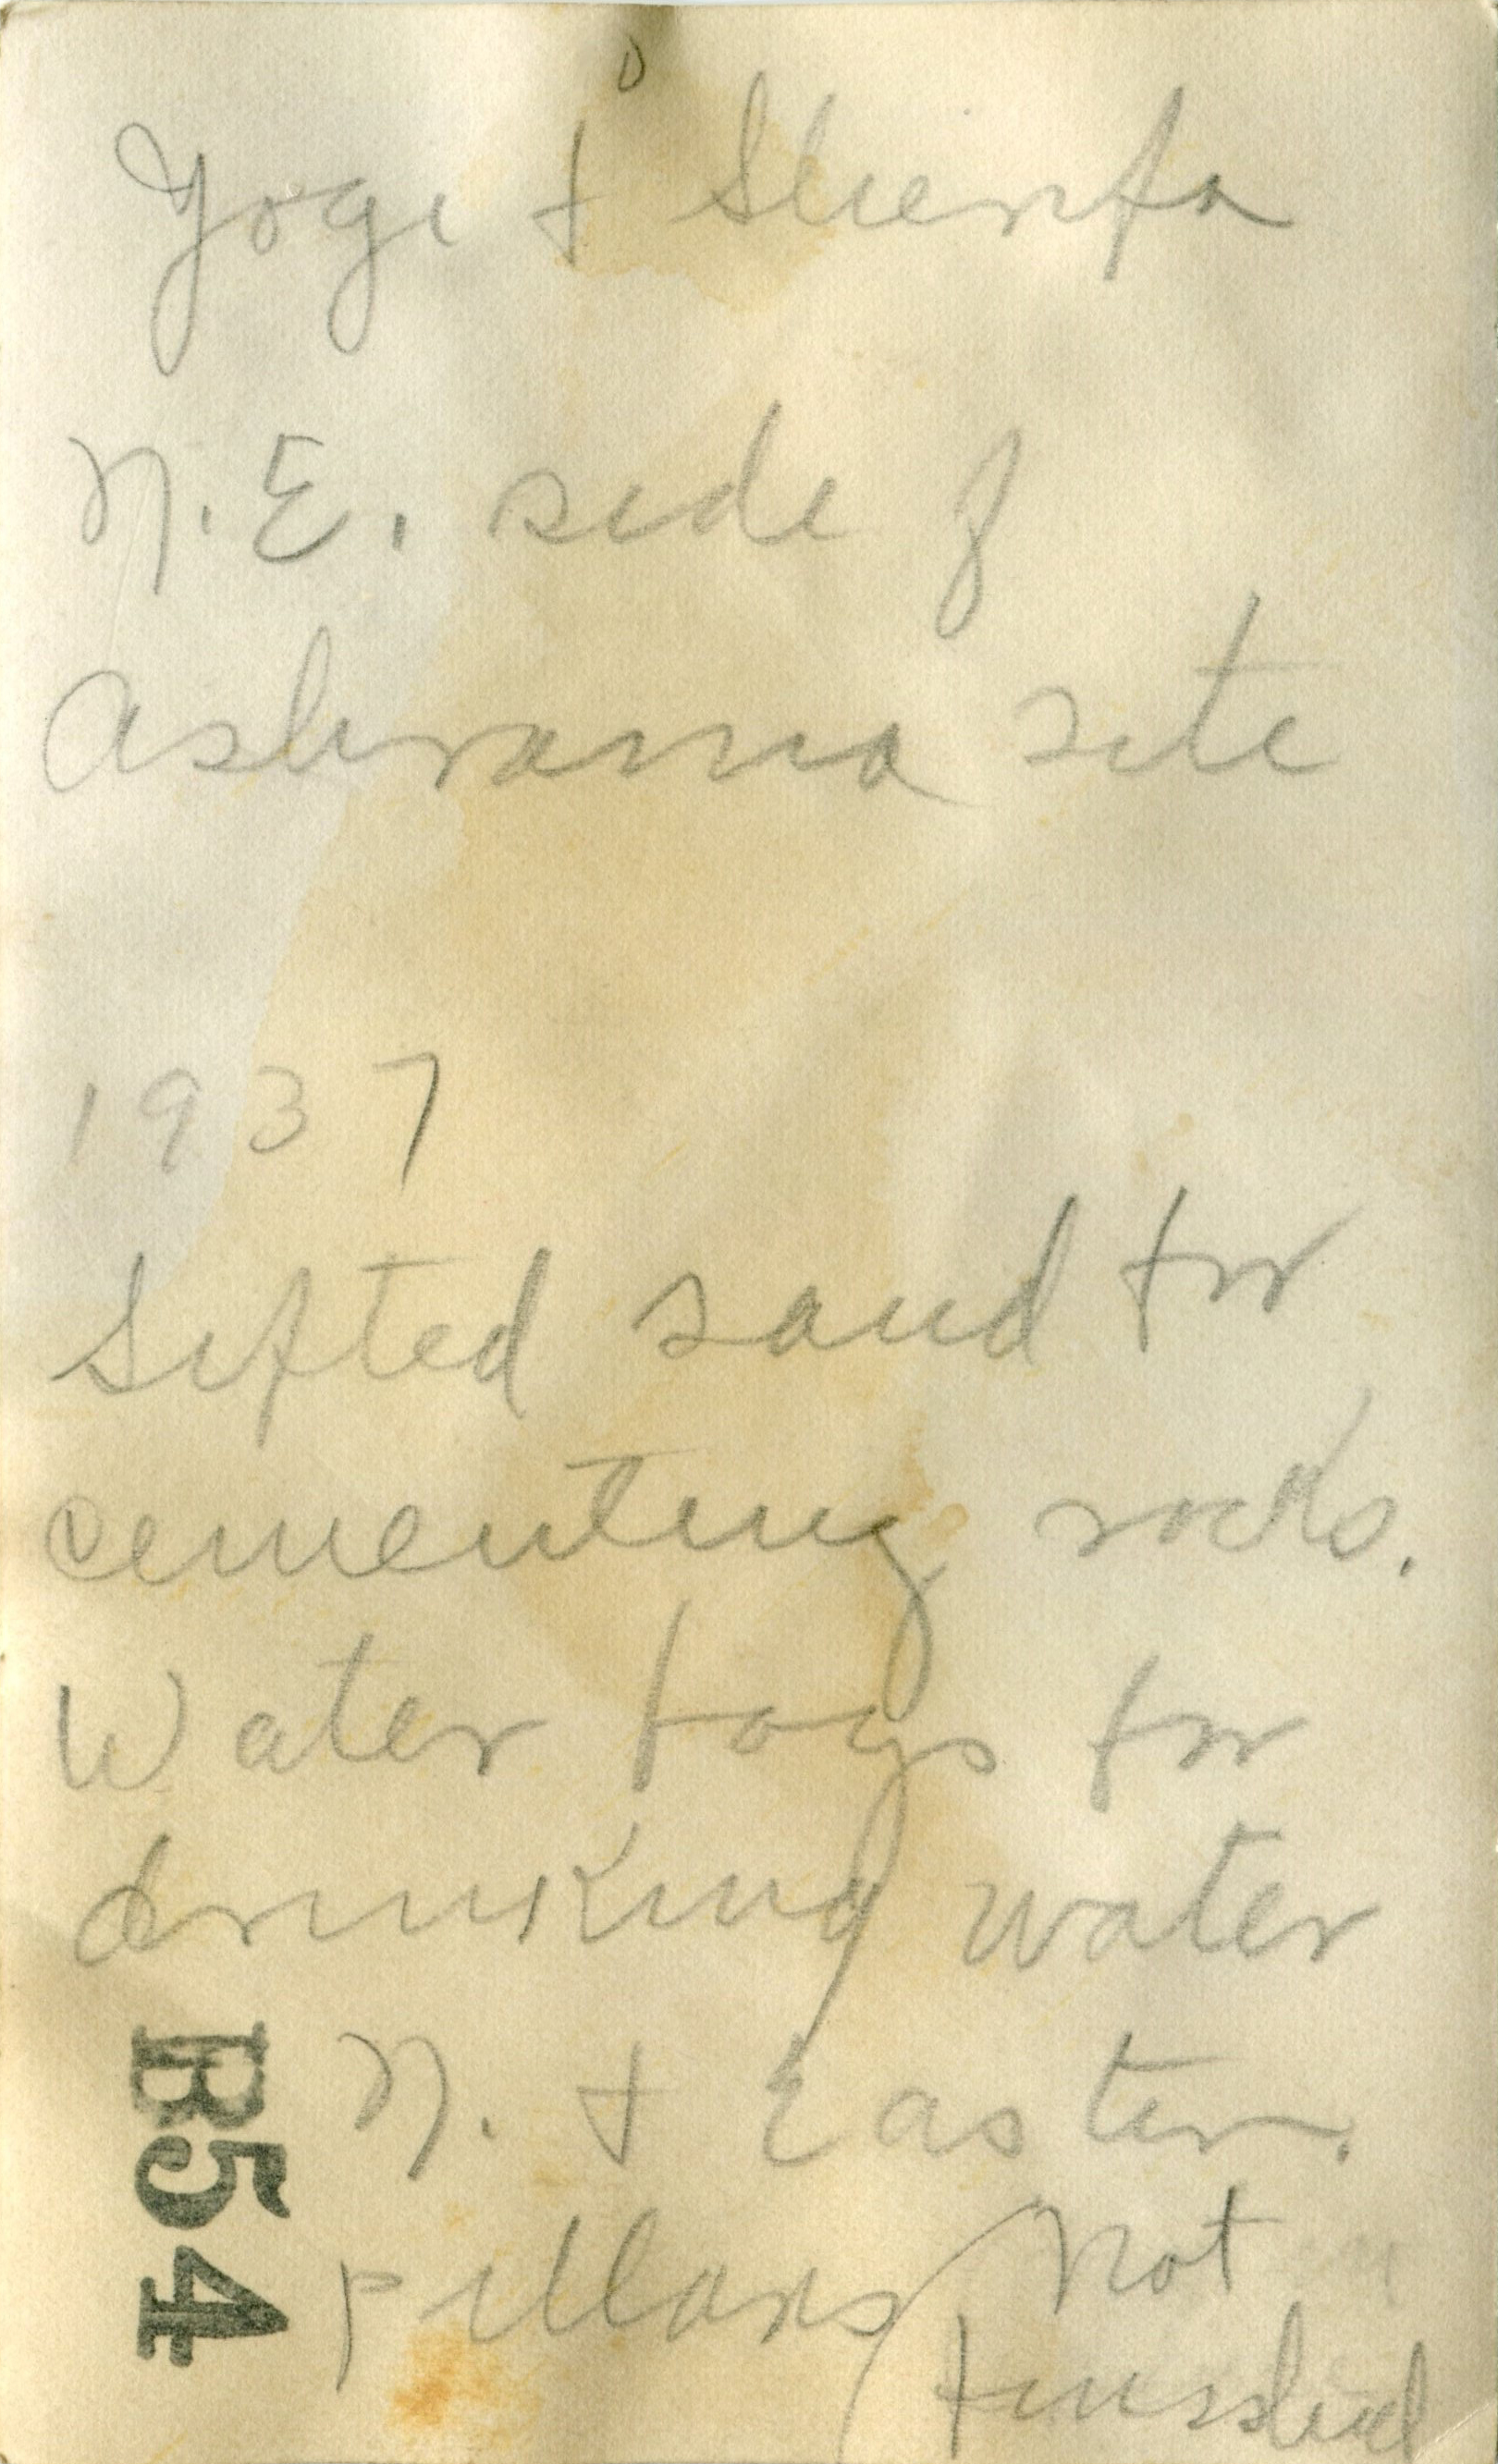 Yogi + Sherifa
N.E. side of
Ashrama site
1937
Sifted sand for
cementing rocks.
Water bags for
drinking water
N. + Eastern.
pillars not
finished
B54